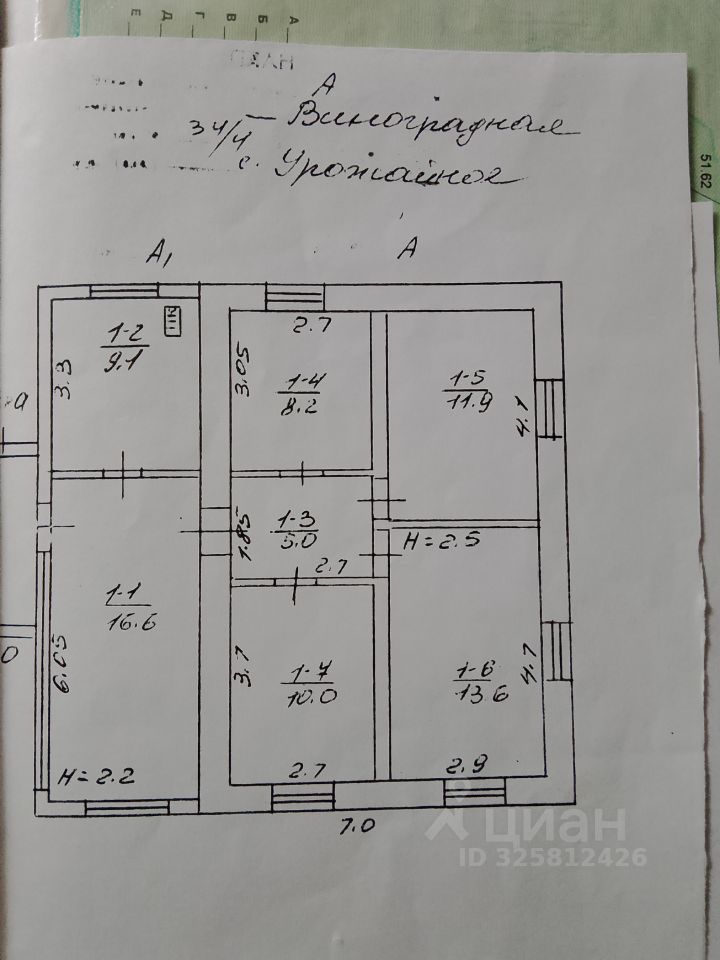 А Б В Г Д Е
ПЛАН
А
34/4 — Виноградная
с. Урожайное
51.62
А₁ А
1-2
9.1
3.3
2.7
3.05
1-4
8.2
1-5
11.9
4.1
а
1.85
1-3
5.0
2.7
H=2.5
1-1
16.6
6.05
H=2.2
3.7
1-7
10.0
2.7
1-6
13.6
4.7
2.9
7.0
циан
ID 325812426